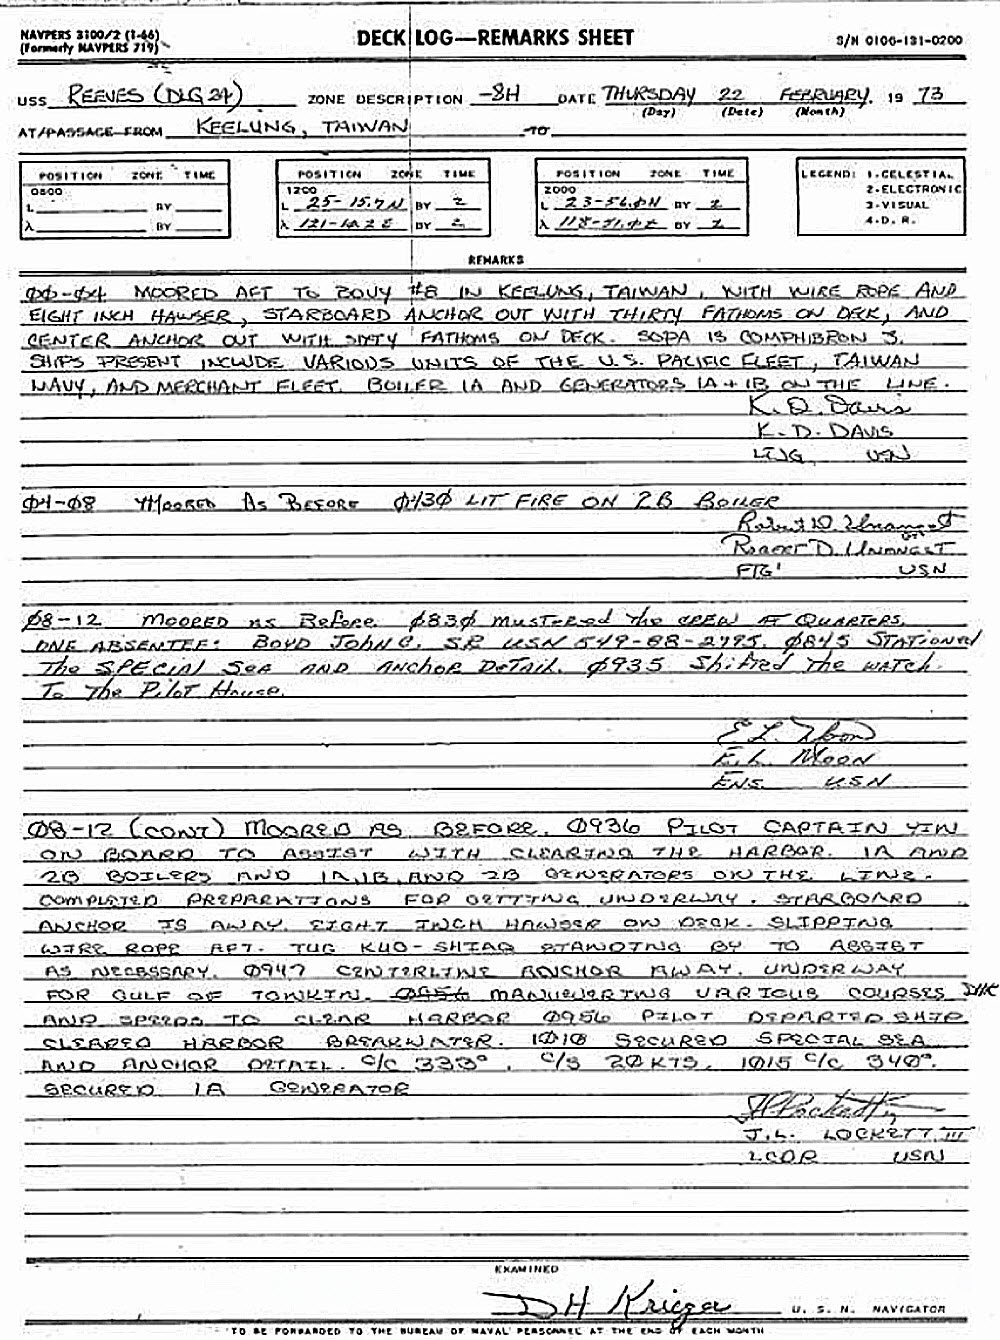 NAVPERS 3100/2 (1-66)
(Formerly NAVPERS 719)
DECK LOG—REMARKS SHEET
S/N 0106-131-0200
USS REEVES (DLG 24) ZONE DESCRIPTION -8H DATE THURSDAY 22 FEBRUARY 19 73
(Day) (Date) (Month)
AT/PASSAGE FROM KEELUNG, TAIWAN TO
POSITION ZONE TIME
0800
L BY
λ BY
POSITION ZONE TIME
1200
L 25-15.7N BY 2
λ BY 2
POSITION ZONE TIME
2000
L 23-56.0N BY 2
λ BY 2
LEGEND: 1-CELESTIAL
2-ELECTRONIC
3-VISUAL
4-D. R.
REMARKS
00-04 MOORED AFT TO BOUY #8 IN KEELUNG, TAIWAN, WITH WIRE ROPE AND
EIGHT INCH HAWSER, STARBOARD ANCHOR OUT WITH THIRTY FATHOMS ON DECK, AND
CENTER ANCHOR OUT WITH SIXTY FATHOMS ON DECK. SOPA IS COMPHIBRON 3.
SHIPS PRESENT INCLUDE VARIOUS UNITS OF THE U.S. PACIFIC FLEET, TAIWAN
NAVY, AND MERCHANT FLEET. BOILER 1A AND GENERATORS 1A + 1B ON THE LINE.
K. D. Davis
K. D. DAVIS
LTJG USN
04-08 MOORED AS BEFORE 0430 LIT FIRE ON 2B BOILER
Robert D. Unangst
ROBERT D. UNANGST
FTG1 USN
08-12 MOORED as Before. 0830 MUSTERED The CREW AT QUARTERS.
ONE ABSENTEE: BOYD JOHN C. SR USN 549-88-2795. 0845 STATIONED
The SPECIAL SEA AND ANCHOR DETAIL. 0935 Shifted The WATCH
To The PILOT House.
E L Moon
E. L. MOON
ENS. USN
08-12 (CONT) MOORED AS BEFORE. 0936 PILOT CAPTAIN YIN
ON BOARD TO ASSIST WITH CLEARING THE HARBOR. 1A AND
2B BOILERS AND 1A, 1B, AND 2B GENERATORS ON THE LINE.
COMPLETED PREPARATIONS FOR GETTING UNDERWAY. STARBOARD
ANCHOR IS AWAY. EIGHT INCH HAWSER ON DECK. SLIPPING
WIRE ROPE AFT. TUG KUO-SHIAO STANDING BY TO ASSIST
AS NECESSARY. 0947 CENTERLINE ANCHOR AWAY. UNDERWAY
FOR GULF OF TONKIN. 0956 MANUEVERING VARIOUS COURSES
AND SPEEDS TO CLEAR HARBOR 0956 PILOT DEPARTED SHIP.
CLEARED HARBOR BREAKWATER. 1010 SECURED SPECIAL SEA
AND ANCHOR DETAIL. C/C 333°, C/S 20 KTS. 1015 C/C 340°.
SECURED 1A GENERATOR
J.L. LOCKETT III
LCDR USN
EXAMINED
DH Krieger U. S. N. NAVIGATOR
TO BE FORWARDED TO THE BUREAU OF NAVAL PERSONNEL AT THE END OF EACH MONTH